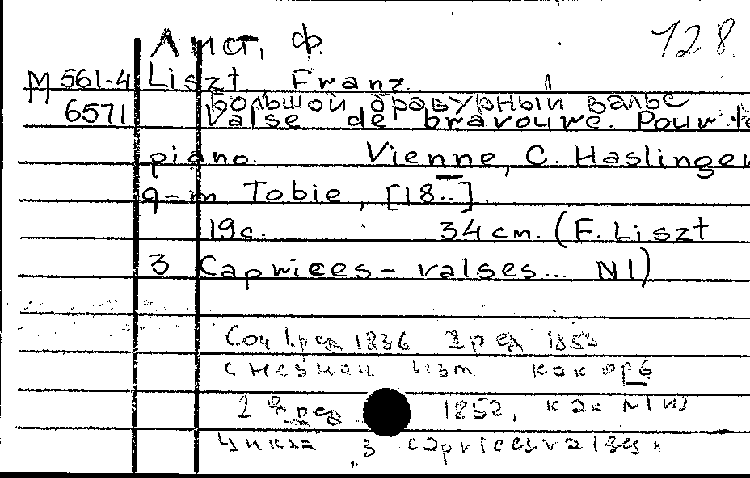 Лист, Ф. 128
М 561-4 Liszt Franz.
6571 Большой бравурный вальс
Valse de bravoure. Pour le
piano. Vienne, C. Haslinger
q-m Tobie, [18..]
19c. 34 cm. (F. Liszt
3 Caprices-valses... N1)
Соч 1 ред 1836 2 ред 1852
изд как ор 6
2 ред 1852, как N1 из
цикла "3 caprices valses"